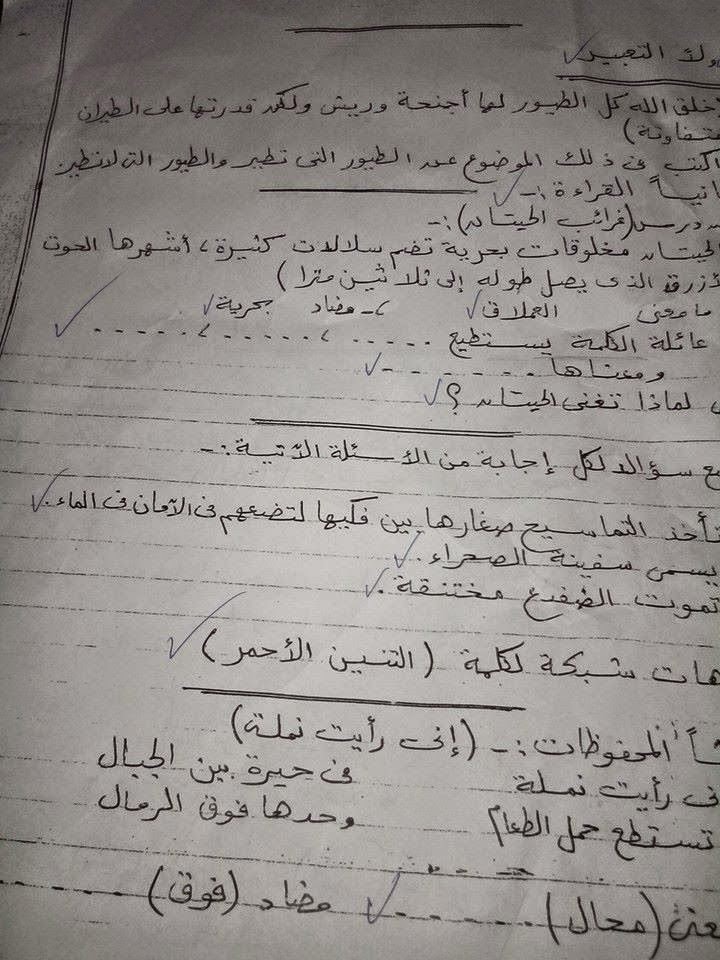 ولا التعبير
خلق الله كل الطيور لها أجنحة وريش ولكن قدرتها على الطيران
متفاوتة)
اكتب فى ذلك الموضوع عن الطيور التى تطير والطيور التى لا تطير
انياً القراءة :-
درس (غرائب الحيتان) :-
الحيتان مخلوقات بحرية تضم سلالات كثيرة ، أشهرها الحوت
أزرق الذى يصل طوله إلى ثلاثين مترا )
ما معنى العملاق ، - مضاد بحرية
عائلة الكلمة يستطيع ..... ، ..... ، .....
ومعناها .......
لماذا تغنى الحيتان ؟
ع سؤالا لكل إجابة من الأسئلة الآتية :-
تأخذ التماسيح صغارها بين فكيها لتضعهم فى الأمان فى الماء .
يسمى سفينة الصحراء .
تموت الضفدع مختنقة .
هات شبكة لكلمة ( التنين الأحمر )
ثاً المحفوظات :- (إنى رأيت نملة)
نى رأيت نملة فى حيرة بين الجبال
تستطع حمل الطعام وحدها فوق الرمال
عنى (محال) ...... مضاد (فوق) ......